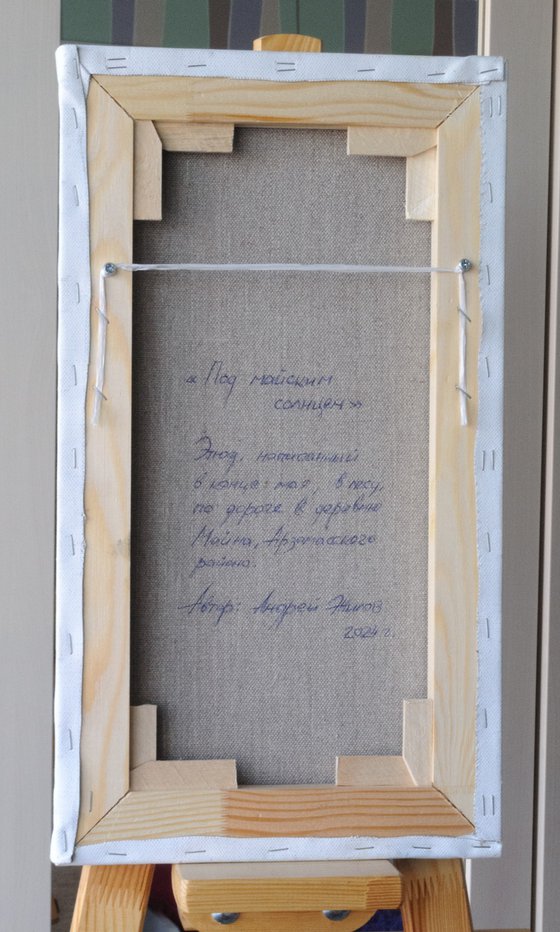 « Под майским
солнцем»
Этюд, написанный
в конце мая, в лесу,
по дороге в деревню
Майна, Арзамасского
района.
Автор: Андрей Жилов
2024 г.